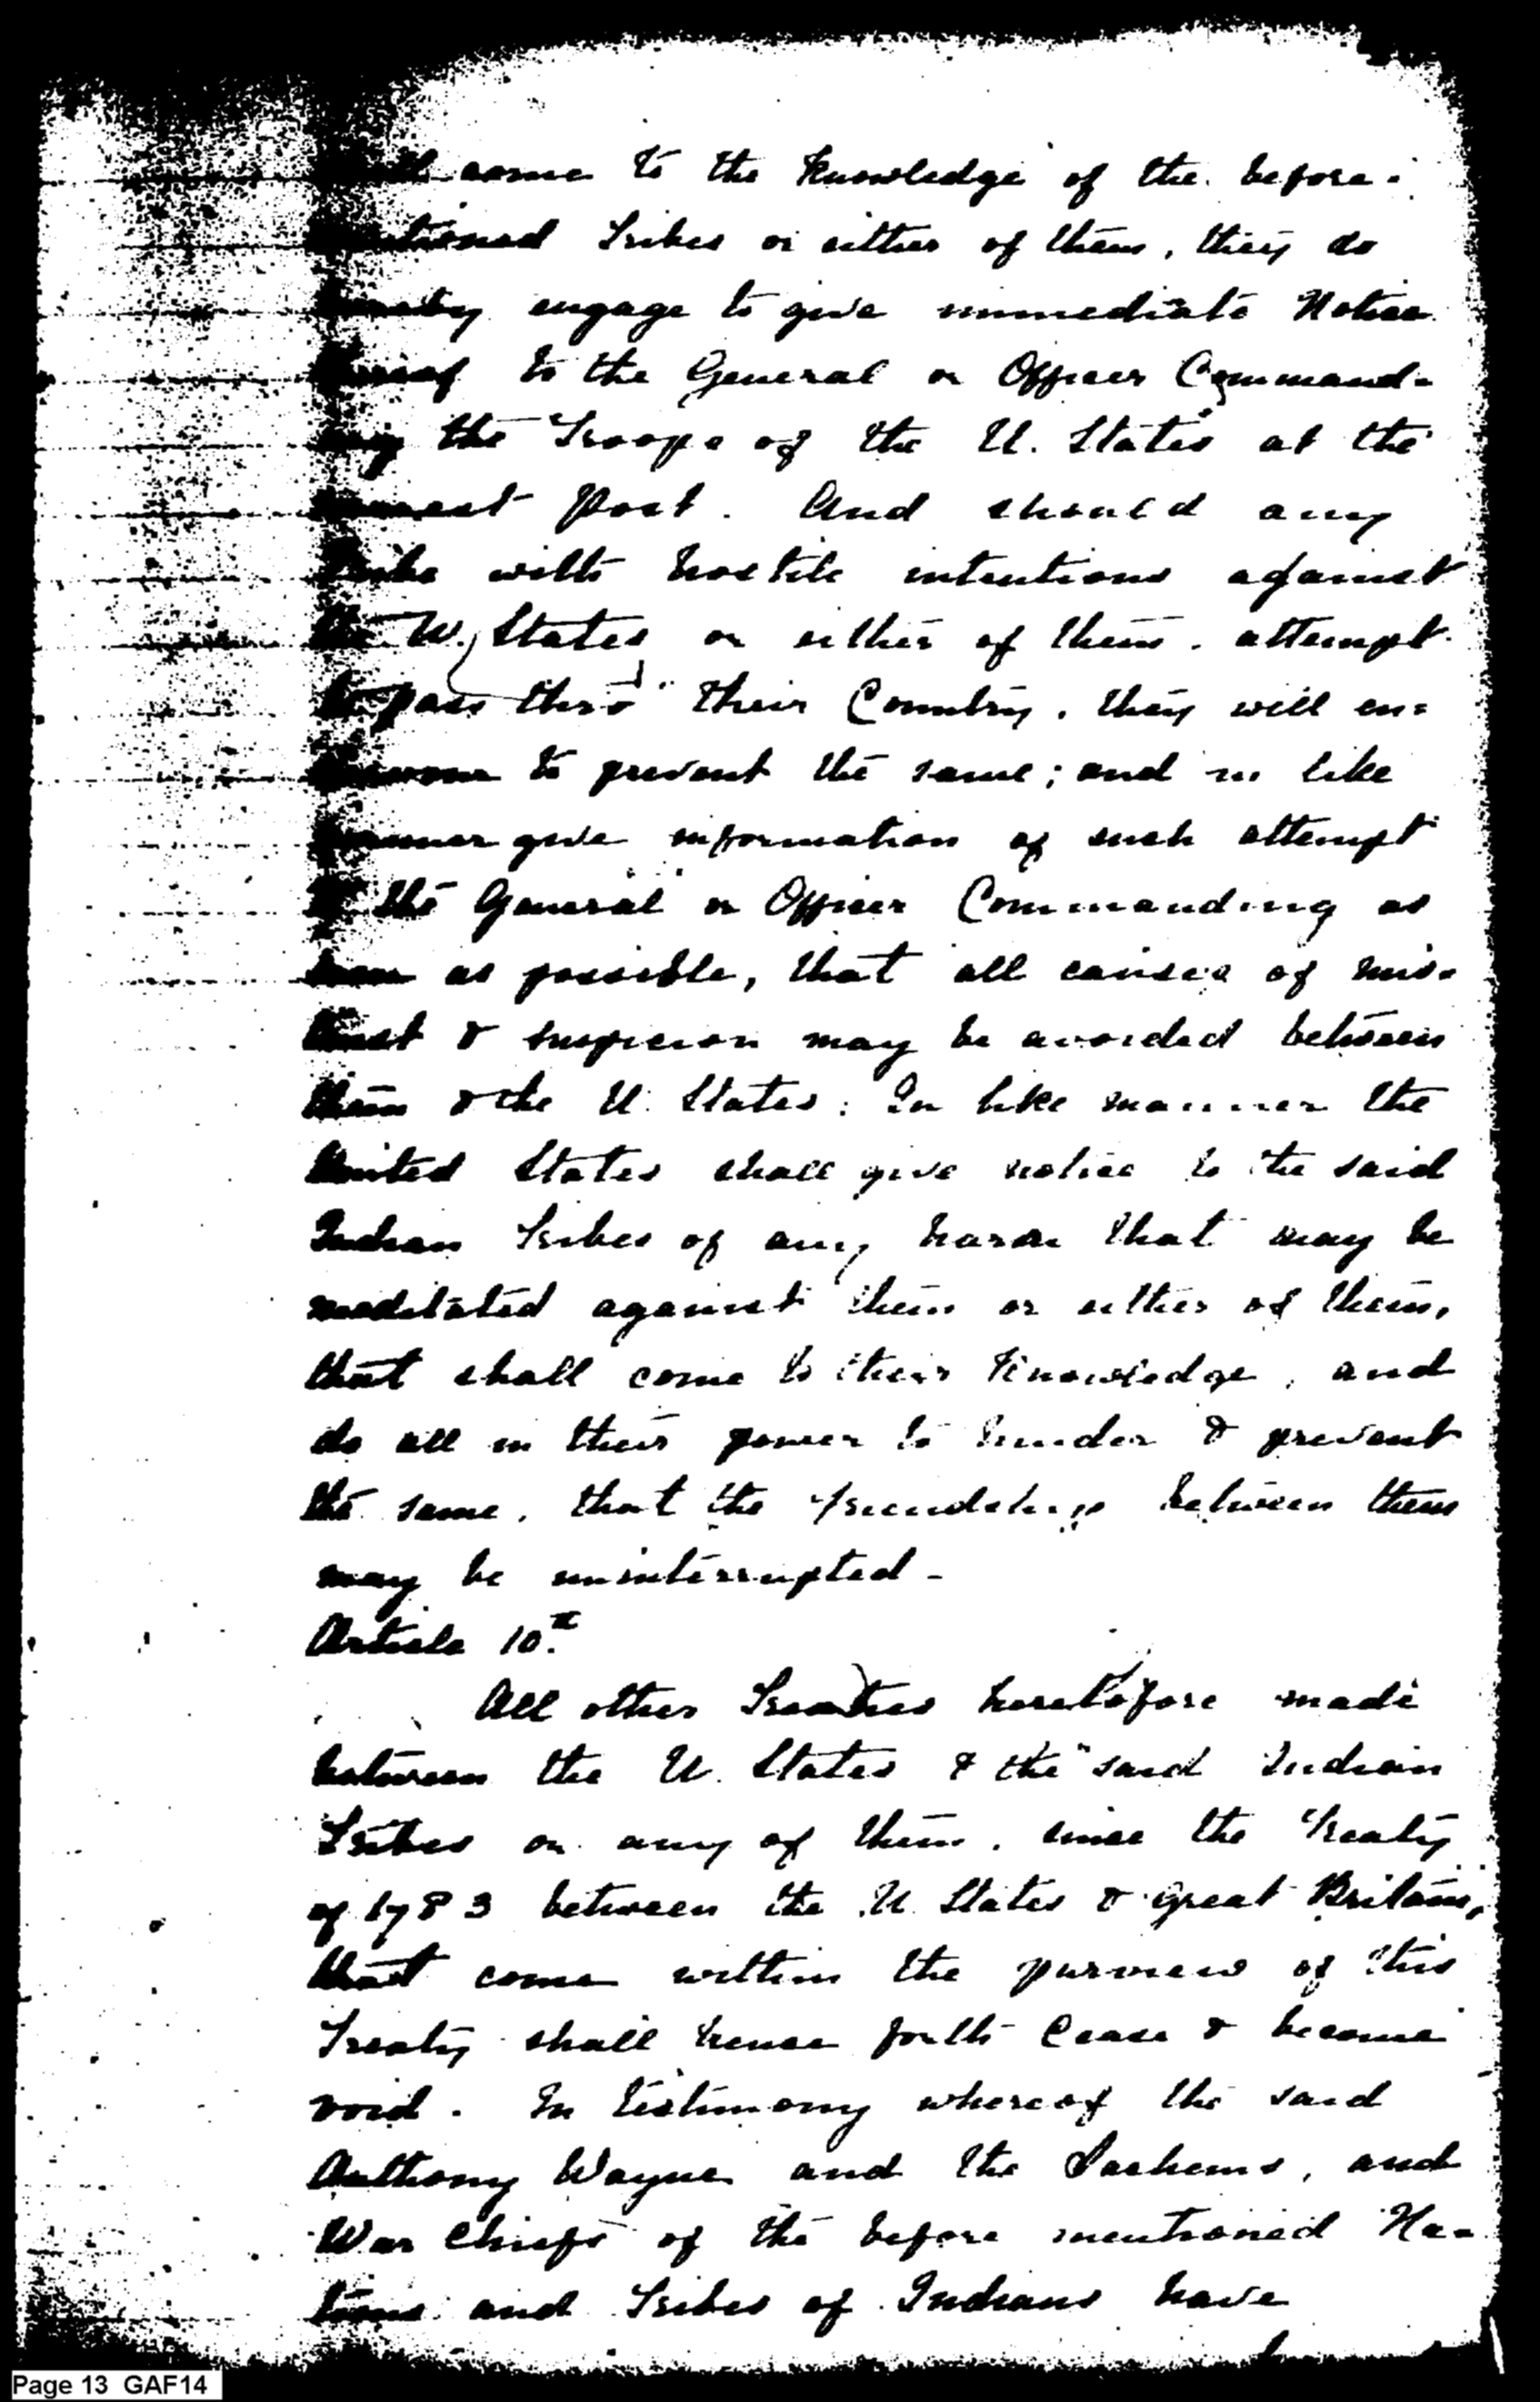 come to the knowledge of the before-
mentioned Tribes or either of them, they do
hereby engage to give immediate Notice
thereof to the General or Officer Command-
ing the Troops of the U. States at the
nearest Post. And should any
Tribe with hostile intentions against
the U. States or either of them, attempt
to pass thro' their Country, they will en=
deavour to prevent the same; and in like
manner give information of such attempt
to the General or Officer Commanding as
soon as possible, that all causes of mis-
trust & suspicion may be avoided between
them & the U. States. In like manner the
United States shall give notice to the said
Indian Tribes of any harm that may be
meditated against them or either of them,
that shall come to their Knowledge, and
do all in their power to hinder & prevent
the same, that the friendship between them
may be uninterrupted -
Article 10th
All other Treaties heretofore made
between the U. States & the said Indian
Tribes or any of them, since the Treaty
of 1783 between the U States & Great Britain,
that come within the purview of this
Treaty shall hence forth Cease & become
void. In testimony whereof the said
Anthony Wayne and the Sachems, and
War Chiefs of the before mentioned Na-
tions and Tribes of Indians have
Page 13 GAF14